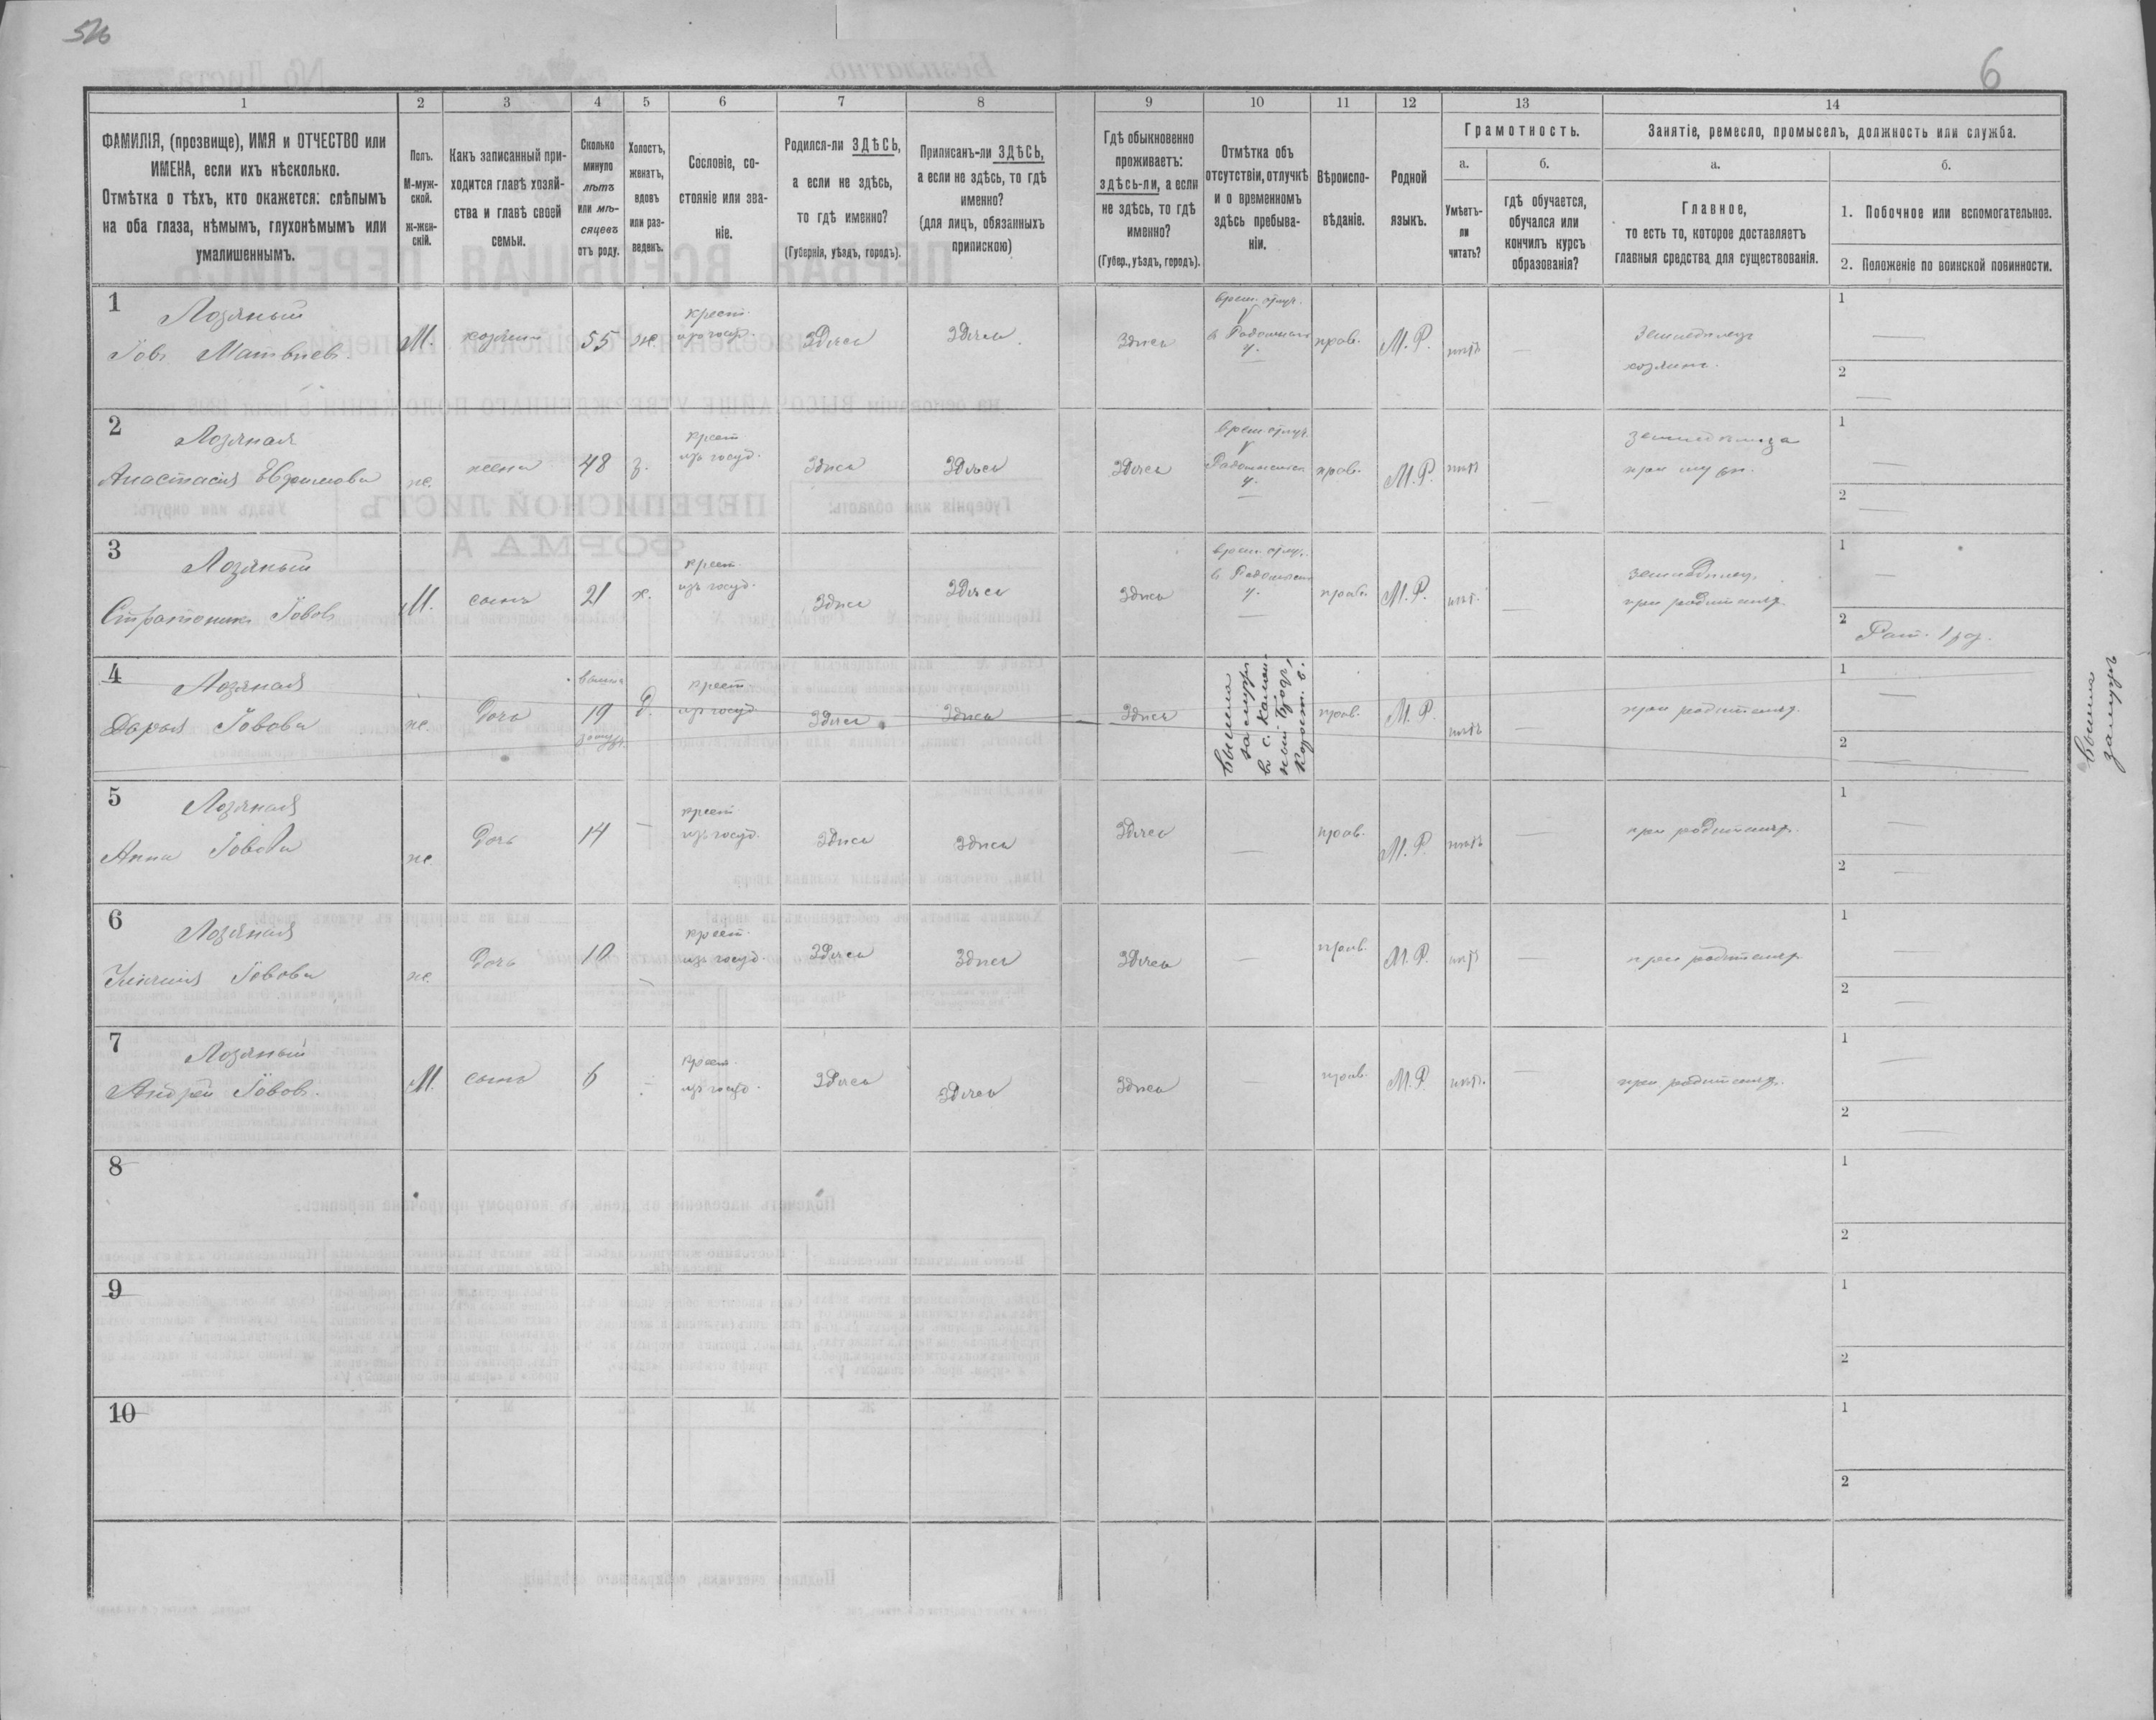 516
6
1
2
3
4
5
6
7
8
9
10
11
12
13
14
ФАМИЛІЯ, (прозвище), ИМЯ и ОТЧЕСТВО или
ИМЕНА, если ихъ нѣсколько.
Отмѣтка о тѣхъ, кто окажется: слѣпымъ
на оба глаза, нѣмымъ, глухонѣмымъ или
умалишеннымъ.
Полъ.
М-муж-
ской.
ж-жен-
скій.
Какъ записанный при-
ходится главѣ хозяй-
ства и главѣ своей
семьи.
Сколько
минуло
лѣтъ
или мѣ-
сяцевъ
отъ роду.
Холостъ,
женатъ,
вдовъ
или раз-
веденъ.
Сословіе, со-
стояніе или зва-
ніе.
Родился-ли ЗДѢСЬ,
а если не здѣсь,
то гдѣ именно?
(Губернія, уѣздъ, городъ).
Приписанъ-ли ЗДѢСЬ,
а если не здѣсь, то гдѣ
именно?
(для лицъ, обязанныхъ
припискою)
Гдѣ обыкновенно
проживаетъ:
здѣсь-ли, а если
не здѣсь, то гдѣ
именно?
(Губер., уѣздъ, городъ).
Отмѣтка объ
отсутствіи, отлучкѣ
и о временномъ
здѣсь пребыва-
ніи.
Вѣроиспо-
вѣданіе.
Родной
языкъ.
Грамотность.
а.
б.
Умѣетъ-
ли
читать?
гдѣ обучается,
обучался или
кончилъ курсъ
образованія?
Занятіе, ремесло, промыселъ, должность или служба.
а.
б.
Главное,
то есть то, которое доставляетъ
главныя средства для существованія.
1. Побочное или вспомогательное.
2. Положеніе по воинской повинности.
1
Лозяный
Іовъ Матвѣевъ.
М.
хозяинъ
55
ж.
крест.
изъ госуд.
Здѣсь
Здѣсь.
Здѣсь
врем. отлуч.
в Радомысл.
у.
прав.
М. Р.
нѣтъ
—
земледѣлецъ
хозяинъ.
1
—
2
—
2
Лозяная
Анастасія Ефимова
ж.
жена
48
з.
крест.
изъ госуд.
Здѣсь
Здѣсь
Здѣсь
врем. отлуч.
Радомысл.
у.
прав.
М. Р.
нѣтъ
—
при мужѣ.
1
—
2
—
3
Лозяный
Стратоникъ Іововъ
М.
сынъ
21
х.
крест.
изъ госуд.
Здѣсь
Здѣсь
Здѣсь
врем. отлуч.
в. Радомысл.
у.
прав.
М. Р.
нѣт.
—
земледѣлец.
при родителяхъ
1
—
2
Рат. 1 раз.
4
Лозяная
Дарья Іовова
ж.
дочь
вышла
19
замуж.
д.
крест.
изъ госуд.
Здѣсь
Здѣсь
Здѣсь
вышла
замужъ
в с. Камен-
ный Бродъ,
прав.
М. Р.
нѣтъ
при родителяхъ.
1
—
2
—
вышла
замужъ
5
Лозяная
Анна Іовова
ж.
дочь
14
—
крест.
изъ госуд.
Здѣсь
Здѣсь
Здѣсь
—
прав.
М. Р.
нѣтъ
—
при родителяхъ.
1
—
2
—
6
Лозяная
Іовова
ж.
дочь
10
—
крест.
изъ госуд.
Здѣсь
Здѣсь
Здѣсь
—
прав.
М. Р.
нѣтъ
—
при родителяхъ
1
—
2
—
7
Лозяный
Андрей Іововъ.
М.
сынъ
6
—
крест.
изъ госуд.
Здѣсь
Здѣсь
Здѣсь
—
прав.
М. Р.
нѣтъ.
—
при родителяхъ.
1
—
2
—
8
1
2
9
1
2
10
1
2